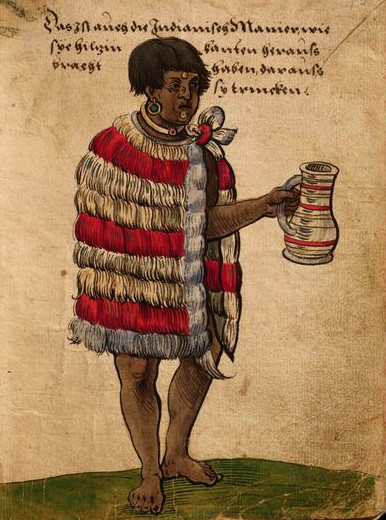 Das Ist auch die Indianisch Manier, wie
sye hilzin kanten herauss
bracht haben, darauss
sy trincken.